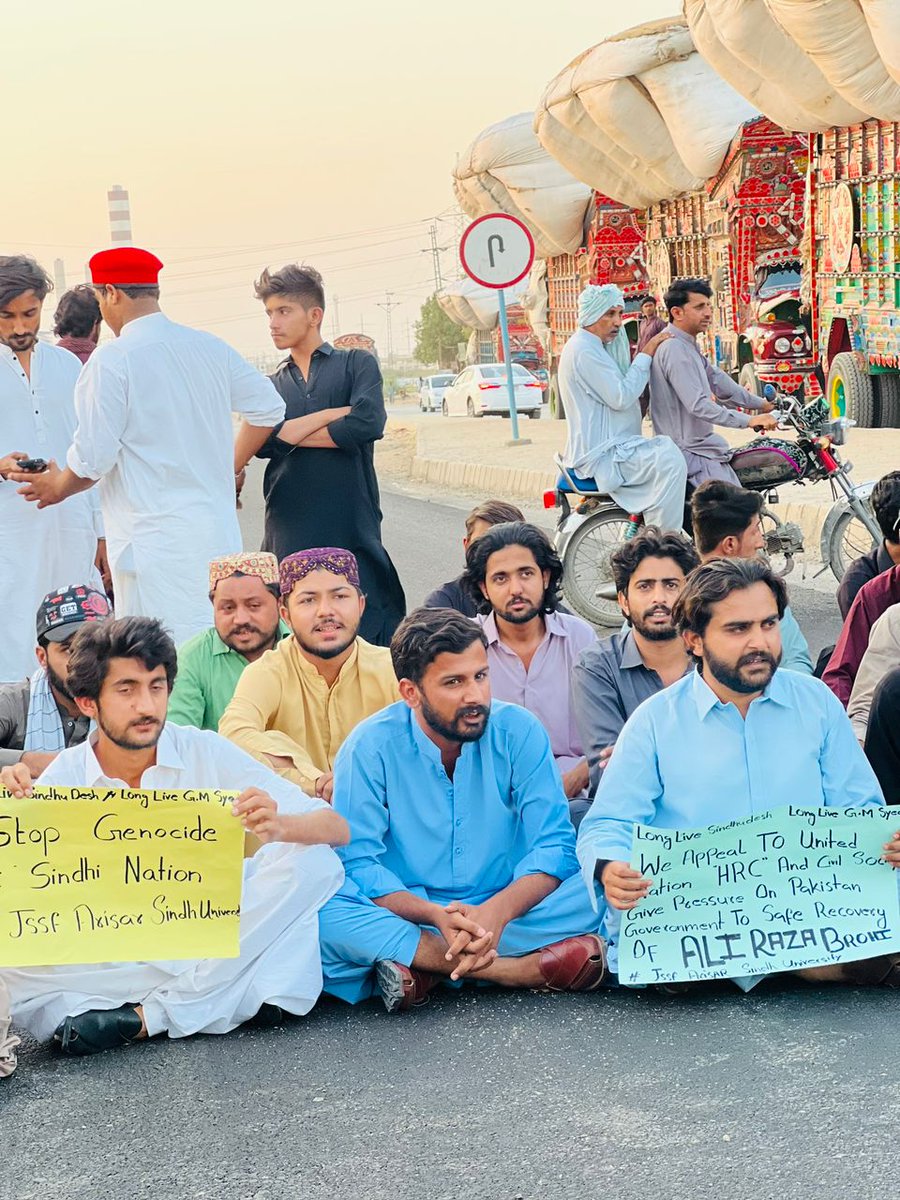 Sindhu Desh Long Live G.M Sye
Stop Genocide
Sindhi Nation
Jssf Arisar Sindh Univer
Long Live Sindhudesh Long Live G.M Sye
We Appeal To United
Nation "HRC" And Civil Soc
Give Pressure On Pakistan
Government To Safe Recovery
Of ALI RAZA BROHI
# Jssf Arisar Sindh University